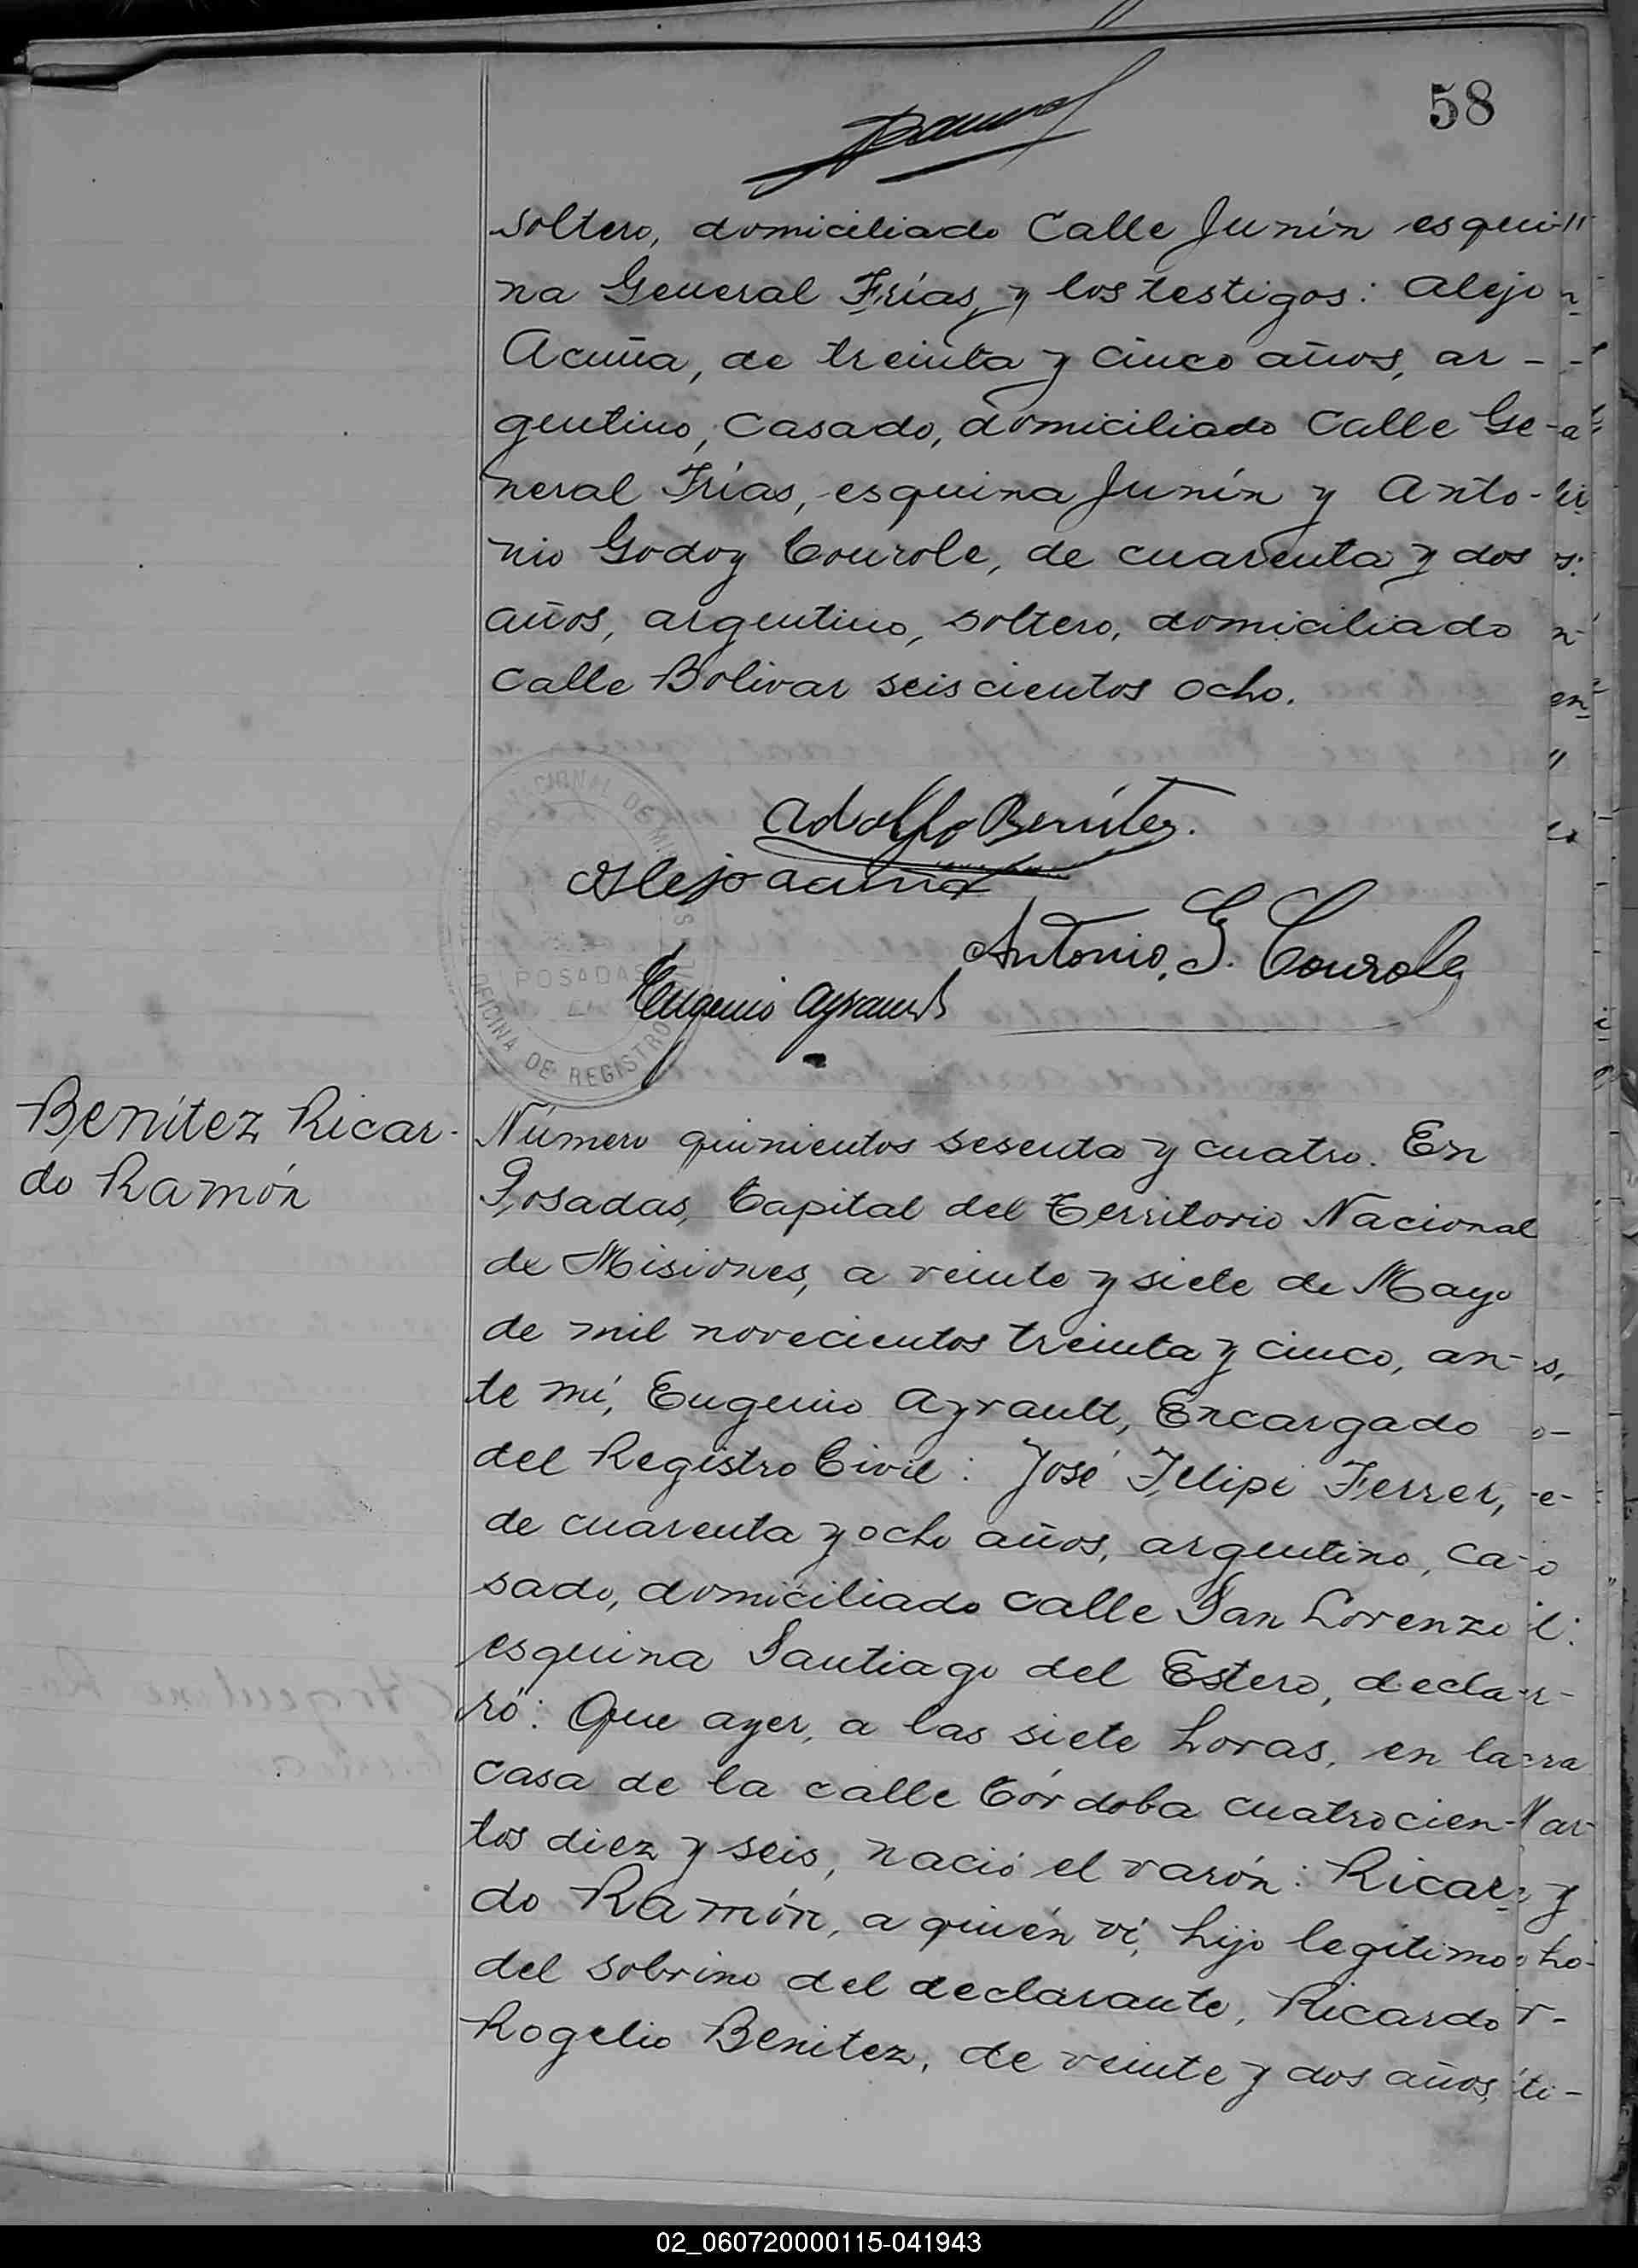 58
soltero, domiciliado Calle Junín esqui-
na General Frías, y los testigos: Alejo
Acuña, de treinta y cinco años, ar-
gentino, casado, domiciliado Calle Ge-
neral Frías, esquina Junín y Anto-
nio Godoy Courole, de cuarenta y dos
años, argentino, soltero, domiciliado
calle Bolivar seiscientos ocho.
Adolfo Benítez.
Alejo Acuña
Antonio, G. Courole
Eugenio Ayrault
POSADAS
OFICINA DE REGISTRO
Benítez Ricar-
do Ramón
Número quinientos sesenta y cuatro. En
Posadas, Capital del Territorio Nacional
de Misiones, a veinte y siete de Mayo
de mil novecientos treinta y cinco, an-
te mí, Eugenio Ayrault, Encargado
del Registro Civil: José Felipe Ferrer,
de cuarenta y ocho años, argentino, ca-
sado, domiciliado calle San Lorenzo
esquina Santiago del Estero, decla-
ró: Que ayer, a las siete horas, en la
casa de la calle Córdoba cuatrocien-
tos diez y seis, nació el varón: Ricar-
do Ramón, a quién ví, hijo legítimo
del sobrino del declarante, Ricardo
Rogelio Benitez, de veinte y dos años,
02_060720000115-041943